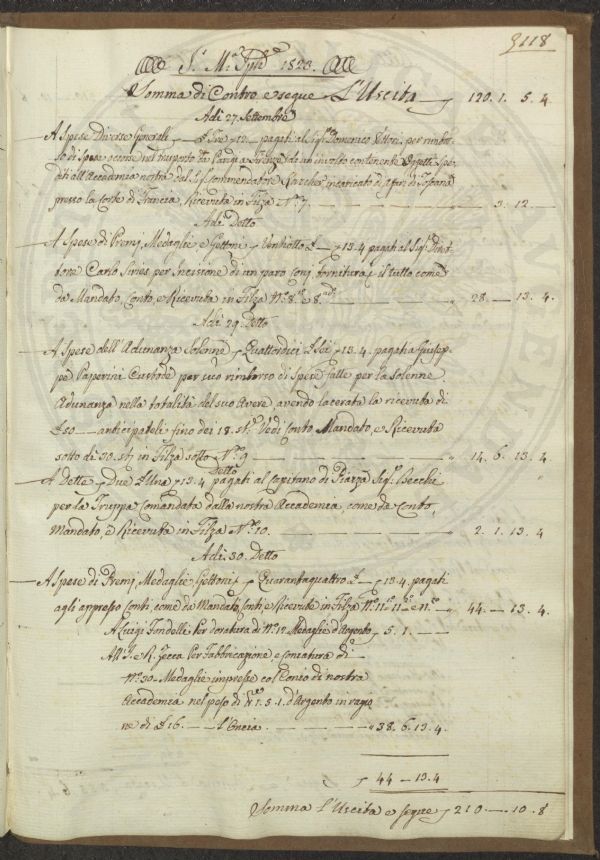 3118
S. M. 1823.
Somma di Contro e segue L'Uscita 120. 1. 5. 4
Adi 27. Settembre
A Spese Diverse Generali Tre 12 pagati al Sig.r Domenico per rimbor
so di Spese occorse nel trasporto da Parigi a Firenze di un involto contenente Oggetti Spe
diti all'Accademia nostra dal Sig. Commendatore incaricato d'affari di Toscana
presso la Corte di Francia, Ricevuta in Filza N.o 7. 3. 12
Adi Detto
A Spese di Premj, Medaglie e Gettoni Ventiotto 13.4 pagati al Sig.r Diret
tore Carlo Siries per Incisione di un paro Conj fornitura il tutto come
da Mandato, Conto, e Ricevuta in Filza N.o 8. e 8. 28. — 13. 4.
Adi 29. Detto
A Spese dell'Adunanza Solenne Quattordici £ Sei 13.4. pagati a Giusep
pe Paperini Custode per suo rimborso di Spese fatte per la Solenne
Adunanza nella totalità del suo Avere avendo lacerata la ricevuta di
£ 50 anticipateli fino dei 18. st.e Vedi Conto Mandato, e Ricevuta
sotto di 30. st. in Filza sotto N.o 9 14. 6. 13. 4
Detto
A Dette Due £ Una 13.4 pagati al Capitano di Piazza Sig.r Becchi
per la Truppa Comandata dalla nostra Accademia, come da Conto,
Mandato, e Ricevuta in Filza N.o 10. 2. 1. 13. 4
Adi. 30. Detto
A Spese di Premj, Medaglie Gettoni Quarantaquattro 13.4. pagati
agli appresso Conti, come da Mandato, Conti, e Ricevute in Filza N.o 11. 11. e 11. 44. — 13. 4.
A Luigi Fondelli Per doratura di N.o 12 Medaglie d'Argento 5. 1.
All'I. e R. Zecca Per Fabbricazione, e coniatura di
N.o 30 Medaglie impresse col Conio di nostra
Accademia nel peso di 1. 5. 1. d'Argento in ragio
ne di £ 16. l'Oncia. 38. 6. 13. 4.
44 — 13. 4
Somma L'Uscita e segue 210. — 10. 8